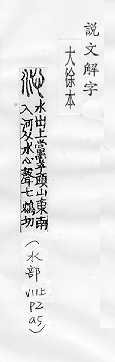 説文解字
大徐本
沁
水出上黨羊頭山東南
入河从水心聲七鴆切
(水部
VIII上
P2
a5)